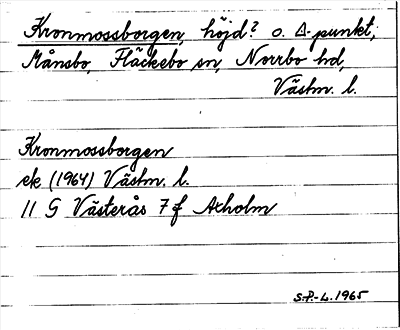 Kronmossborgen, höjd? o. Δ-punkt,
Månsbo, Fläckebo sn, Norrbo hd,
Västm. l.
Kronmossborgen
ek (1964) Västm. l.
11 G Västerås 7 f Axholm
S.P.-L. 1965